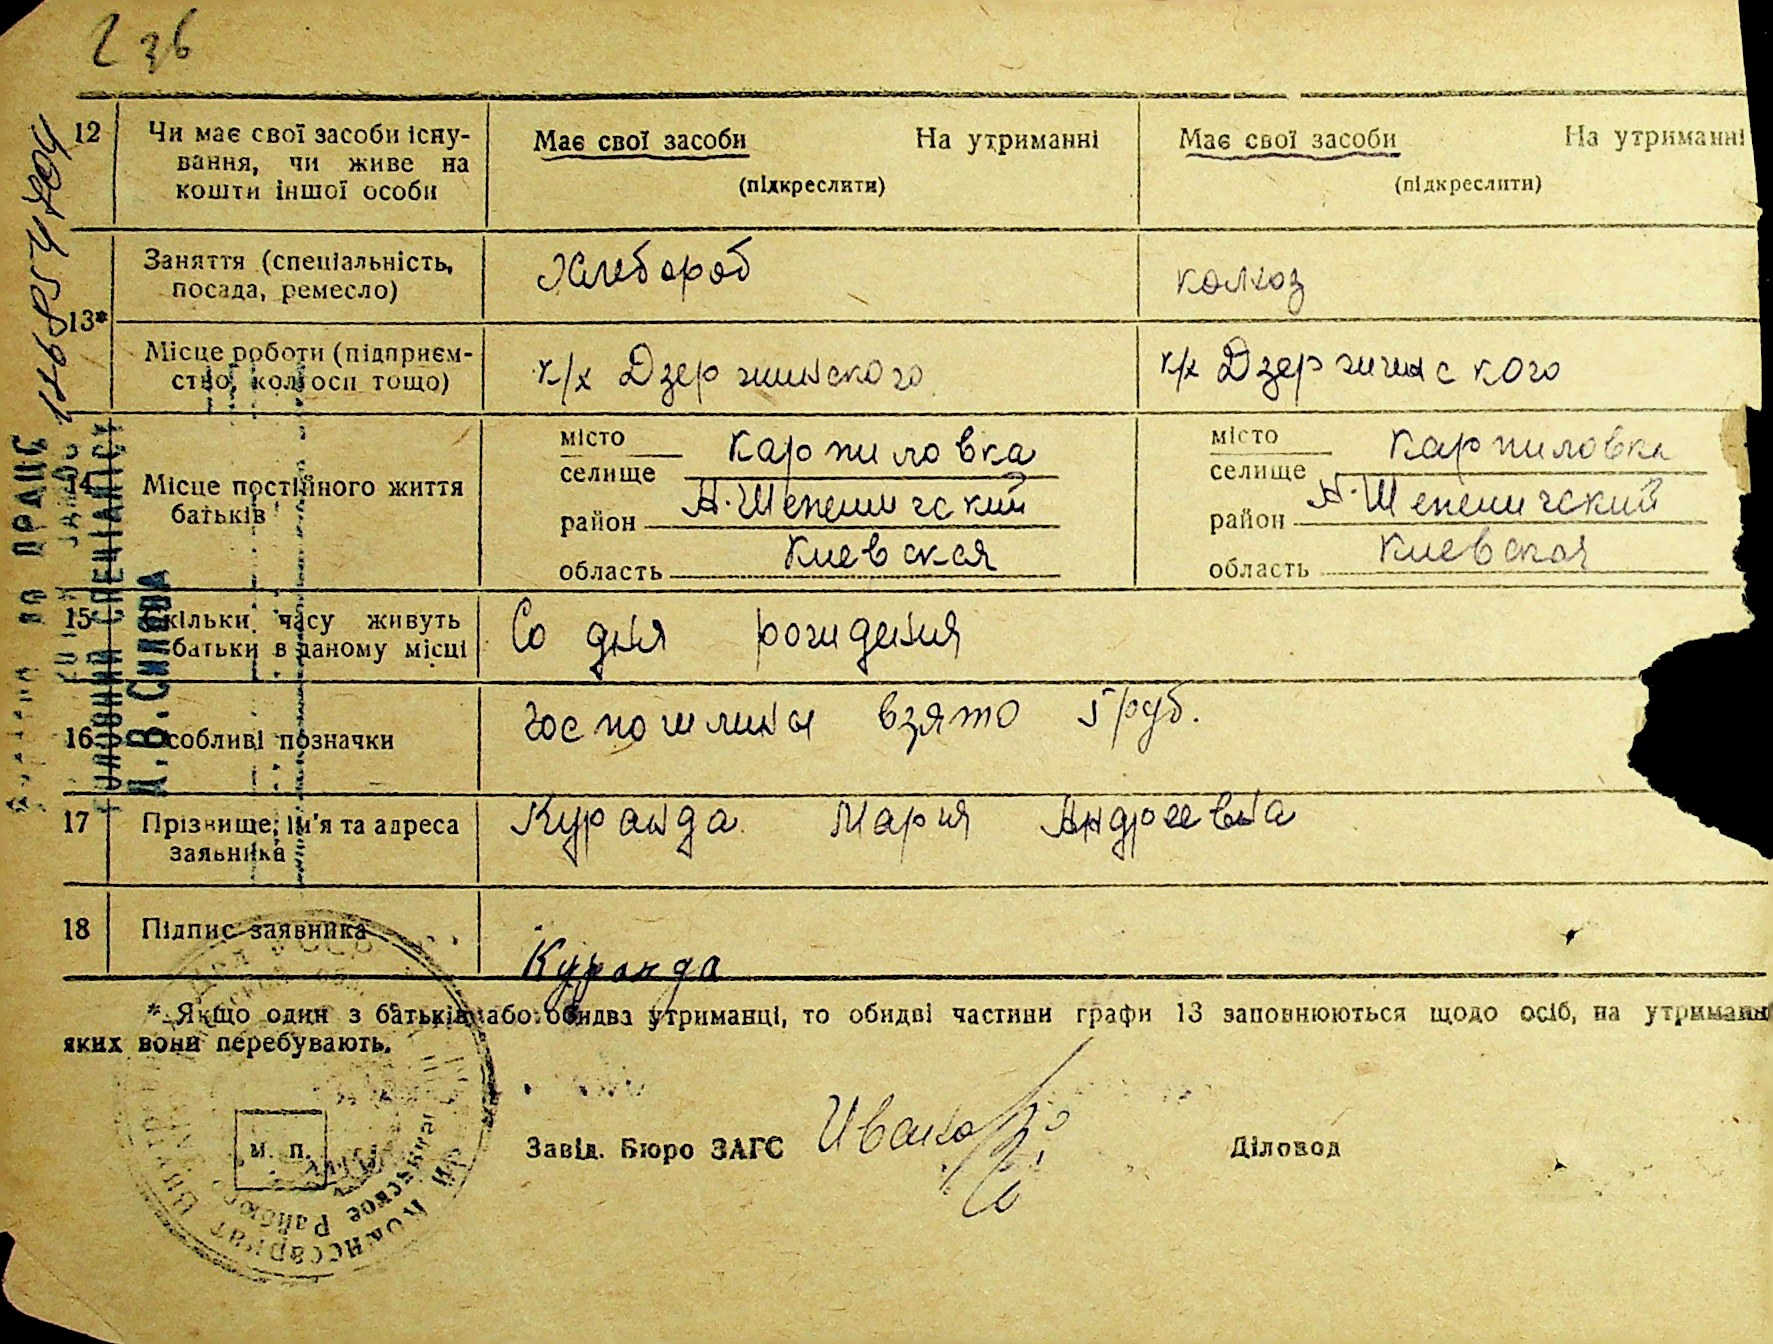 236
12
Чи має свої засоби існу-
вання, чи живе на
кошти іншої особи
Має свої засоби На утриманні
(підкреслити)
Має свої засоби На утриманні
(підкреслити)
13*
Заняття (спеціальність,
посада, ремесло)
Хлебороб
колхоз
Місце роботи (підприєм-
ство, колгосп тощо)
к/х Дзержинского
к/х Дзержинского
14
Місце постійного життя
батьків
місто
селище Карпиловка
район Н.Шепеличский
область Киевская
місто
селище Карпиловка
район Н.Шепеличский
область Киевская
15
Скільки часу живуть
батьки в даному місці
Со дня рождения
16
Особливі позначки
Госпошлины взято 5 руб.
17
Прізвище, ім'я та адреса
заявника
Куранда Мария Андреевна
18
Підпис заявника
Куранда
* Якщо один з батьків або обидва утриманці, то обидві частини графи 13 заповнюються щодо осіб, на утриманні
яких вони перебувають.
м. п.
Завід. Бюро ЗАГС
Діловод
ГОЛОВНИЙ СПЕЦІАЛІСТ